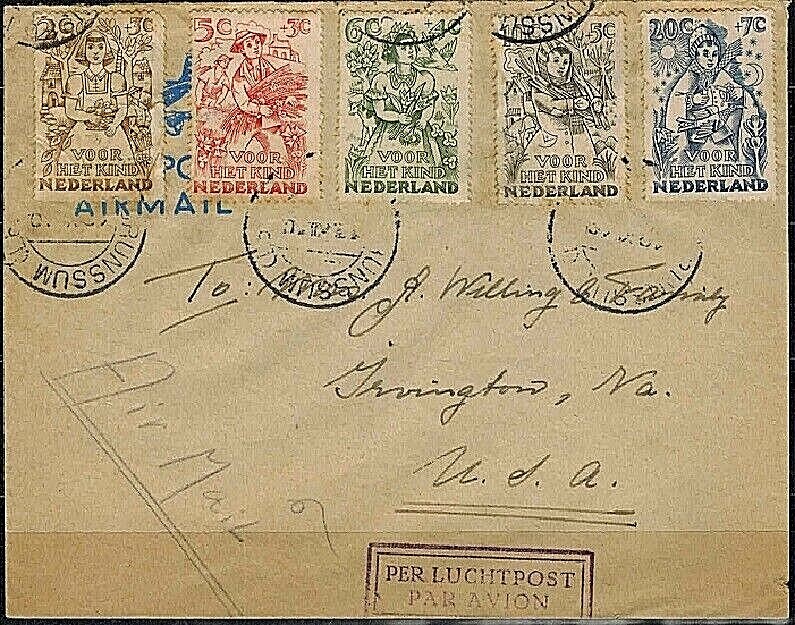 2C +3C
VOOR
HET KIND
NEDERLAND
5C +3C
VOOR
HET KIND
NEDERLAND
6C +4C
VOOR
HET KIND
NEDERLAND
+5C
VOOR
HET KIND
NEDERLAND
20C +7C
VOOR
HET KIND
NEDERLAND
AIRMAIL
BRUNSSUM
UNSSUM
To: A. Walling & Family
Irvington, Va.
U.S.A.
Air Mail
PER LUCHTPOST
PAR AVION